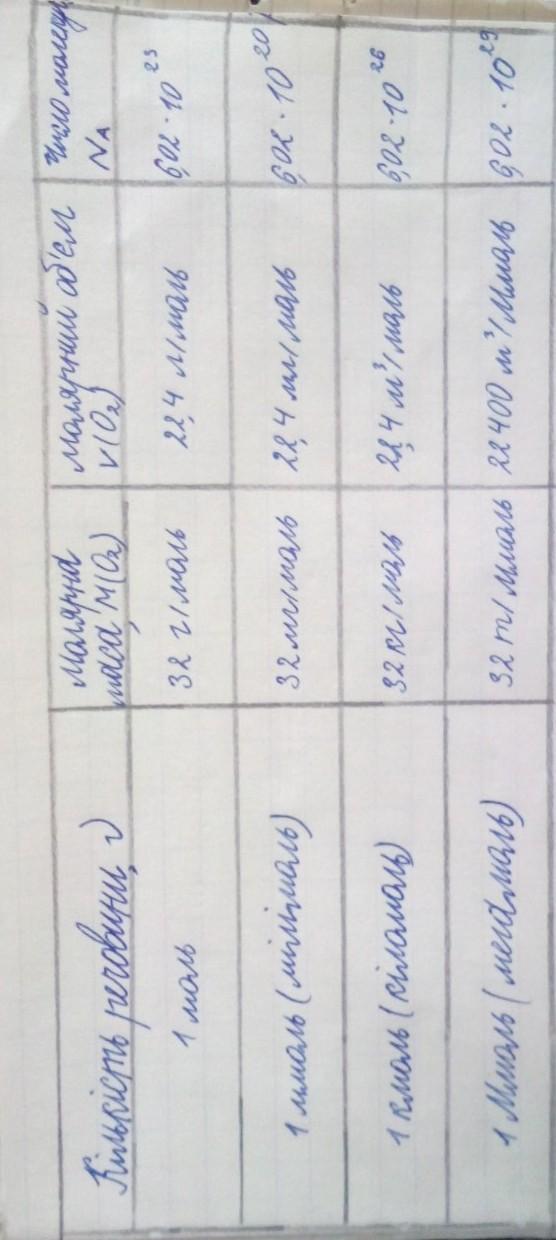 Кількість речовини, ν
Молярна
маса, M(O₂)
Молярний об'єм
V(O₂)
Число молекул
Nₐ
1 моль
32 г/моль
22,4 л/моль
6,02 · 10²³
1 ммоль (мілімоль)
32 мг/моль
22,4 мл/моль
6,02 · 10²⁰
1 кмоль (кіломоль)
32 кг/моль
22,4 м³/моль
6,02 · 10²⁶
1 Ммоль (мегамоль)
32 т/Ммоль
22400 м³/Ммоль
6,02 · 10²⁹